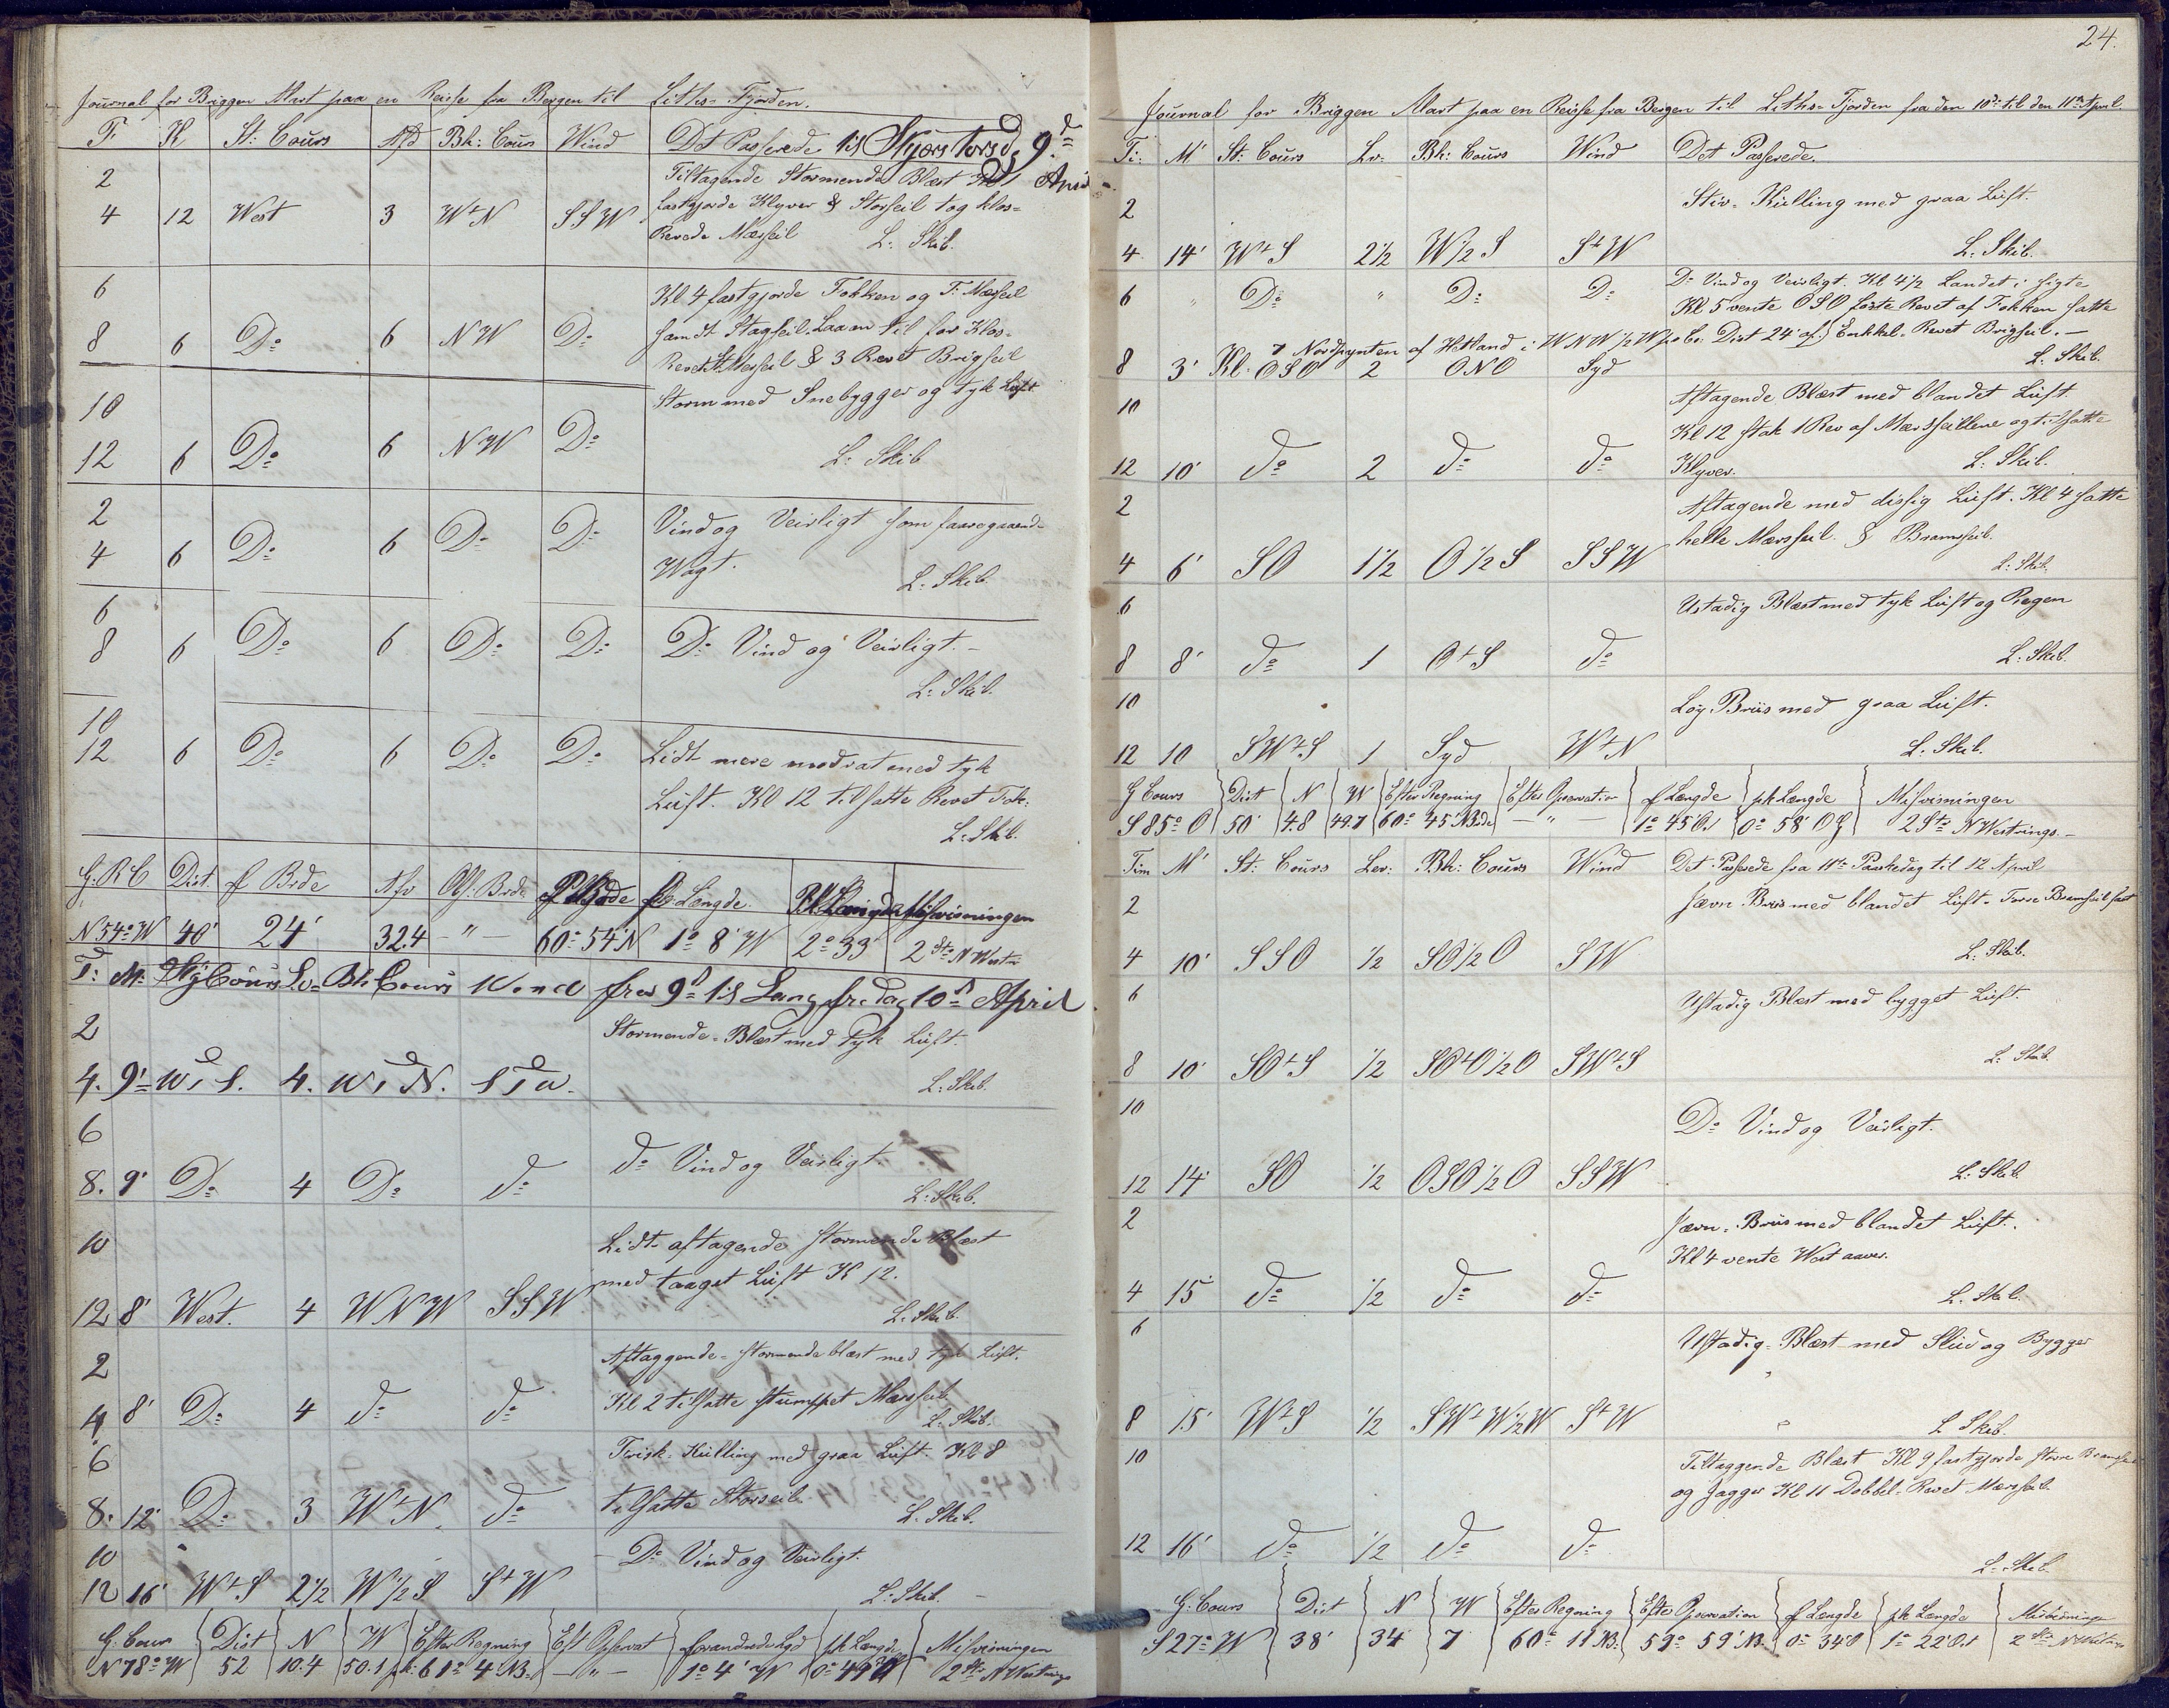 Journal for Briggen Mart paa en Reise fra Bergen til Liths-Fjorden.
T: K St: Cours Afd Bh: Cours Wind Det Passerede til Skjærs torsd. 9de April
2 Tiltagende Stormende Blæst
4 12 West 3 W t N SSW fastgjorde Klyver & Storseil tog klos-
Revede Mærsseil L: Skib.
6 Kl 4 fastgjorde Fokken og F: Mærsseil
8 6 Do 6 NW Do samt Stagseil. Laa an til for Klos-
Revet St. Merseil & 3 Revet Brigseil
10 Storm med Snebygger og tyk Luft
12 6 Do 6 NW Do L: Skib
2 Vind og Veirligt som foregaaend-
4 6 Do 6 Do Do Wagt. L: Skib.
6
8 6 Do 6 Do Do Do Vind og Veirligt. -
L: Skib.
10
12 6 Do 6 Do Do Lidt mere modrat med tyk
Luft. Kl 12 tilsatte Revet Fok:
L: Skib.
G: R C Dist. f Brde Afv Obs. Brde P Brde f Længde Pk Længde Misvisningen
N 54° W 40' 24' 32.4 - " - 60° 54' N 1° 8' W 2° 33' 2 Str N West
T: M: Sty Cours Lv= Bh Cours Wind fra 9d til Langfredag 10d April
2 Stormende - Blæst med tyk Luft.
4. 9' W t S. 4. W t N. S t W. L: Skib.
6
8. 9' Do 4 Do do do Vind og Veirligt.
L: Skib.
10 Lidt aftagende stormende Blæst
med taaget Luft K 12.
12 8' West. 4 WNW SSW L: Skib.
2 Aftaggende - stormende blæst med tyk Luft.
4 8' Do 4 do do Kl 2 tilsatte stumppet Mærsseil
L: Skib.
6 Frisk. Kulling med graa Luft. Kl 8
8. 12' Do 3 W t N do tilsatte Storseil.
L: Skib.
10 - Do Vind og Veirligt.
12 16' W t S 2½ W ½ S S t W L: Skib. -
G: Cour Dist N W Efter Regning Eft Opservat forandrede Lgd pk Længde Misvisningen
N 78° W 52 10.4 50.1 pk: 61° 4' NB. - " - 1° 4' W 0° 49' 2 Str N Westrings
24.
Journal for Briggen Mart paa en Reise fra Bergen til Liths-Fjorden fra den 10de til den 11te April.
Ti: M' St: Cours Lv: Bh: Cours Wind Det Passerede.
2 Stiv- Kulling med graa Luft.
4 14' W t S 2½ W ½ S S t W L: Skib.
6 " Do " Do Do Do Vind og Veirligt. Kl 4½ Landet i sigte
Kl 5 vente OSO løste Revet af Fokken satte
Kl. 7 Nordpynten af Hetland i WNW ½ W p. Co. Dist 24' af Enkkel. Revet Brigseil. -
8 3' OSO 2 ONO Syd L: Skib.
10 Aftagende Blæst med blandet Luft.
Kl 12 stak 1 Rev af Mærsseillene og tilsatte
12 10' do 2 do do Klyver. L: Skib.
2 Aftagende med dissig Luft. Kl 4 satte
4 6' SO 1½ O ½ S SSW helle Mærsseil. & Bramseil.
L: Skib.
6 Ustadig Blæst med tyk Luft og Regen
8 8' do 1 O t S do L: Skib.
10 Løy Briis med graa Luft.
12 10 SW t S 1 Syd W t N L: Skib.
G Cours Dist N W Efter Regning Efter Opservation f Længde pk Længde Misvisningen
S 85° O 50' 4.8 49.7 60° 45' NBde - " - 1° 45' O. 0° 58' O G 2 Str N Westrings. -
Tim M' St: Cours Lev: Bh: Cours Wind Det Passerede fra 11te Paaskedag til 12 April
2 Jævn Briis med blandet Luft. Forre Bramseil fast
4 10' SSO ½ SO ½ O SW L: Skib.
6 Ustadig Blæst med bygget Luft.
8 10' SO t S ½ SO t O ½ O SW t S L: Skib.
10
Do Vind og Veirligt.
12 14' SO ½ OSO ½ O SSW L: Skib
2 Jævn - Briis med blandet Luft.
Kl 4 vente West aaver.
4 15' do ½ do do L: Skib.
6 Ustadig - Blæst med Slud og Bygger
8 15' W t S ½ SW t W ½ W S t W L Skib.
10 Tiltaggende Blæst Kl 9 fastgjorde store Bramseil
og Jagger Kl 11 Dobbel- Revet Mærseil.
12 16' do ½ do do
L: Skib.
G: Cours Dist N W Efter Regning Efter Opservation f Længde pk Længde Misvisninge
S 27° W 38' 34 7 60° 11' NB: 59° 59' NB. 0° 34' O 1° 22' O. 2 Str N Westrings